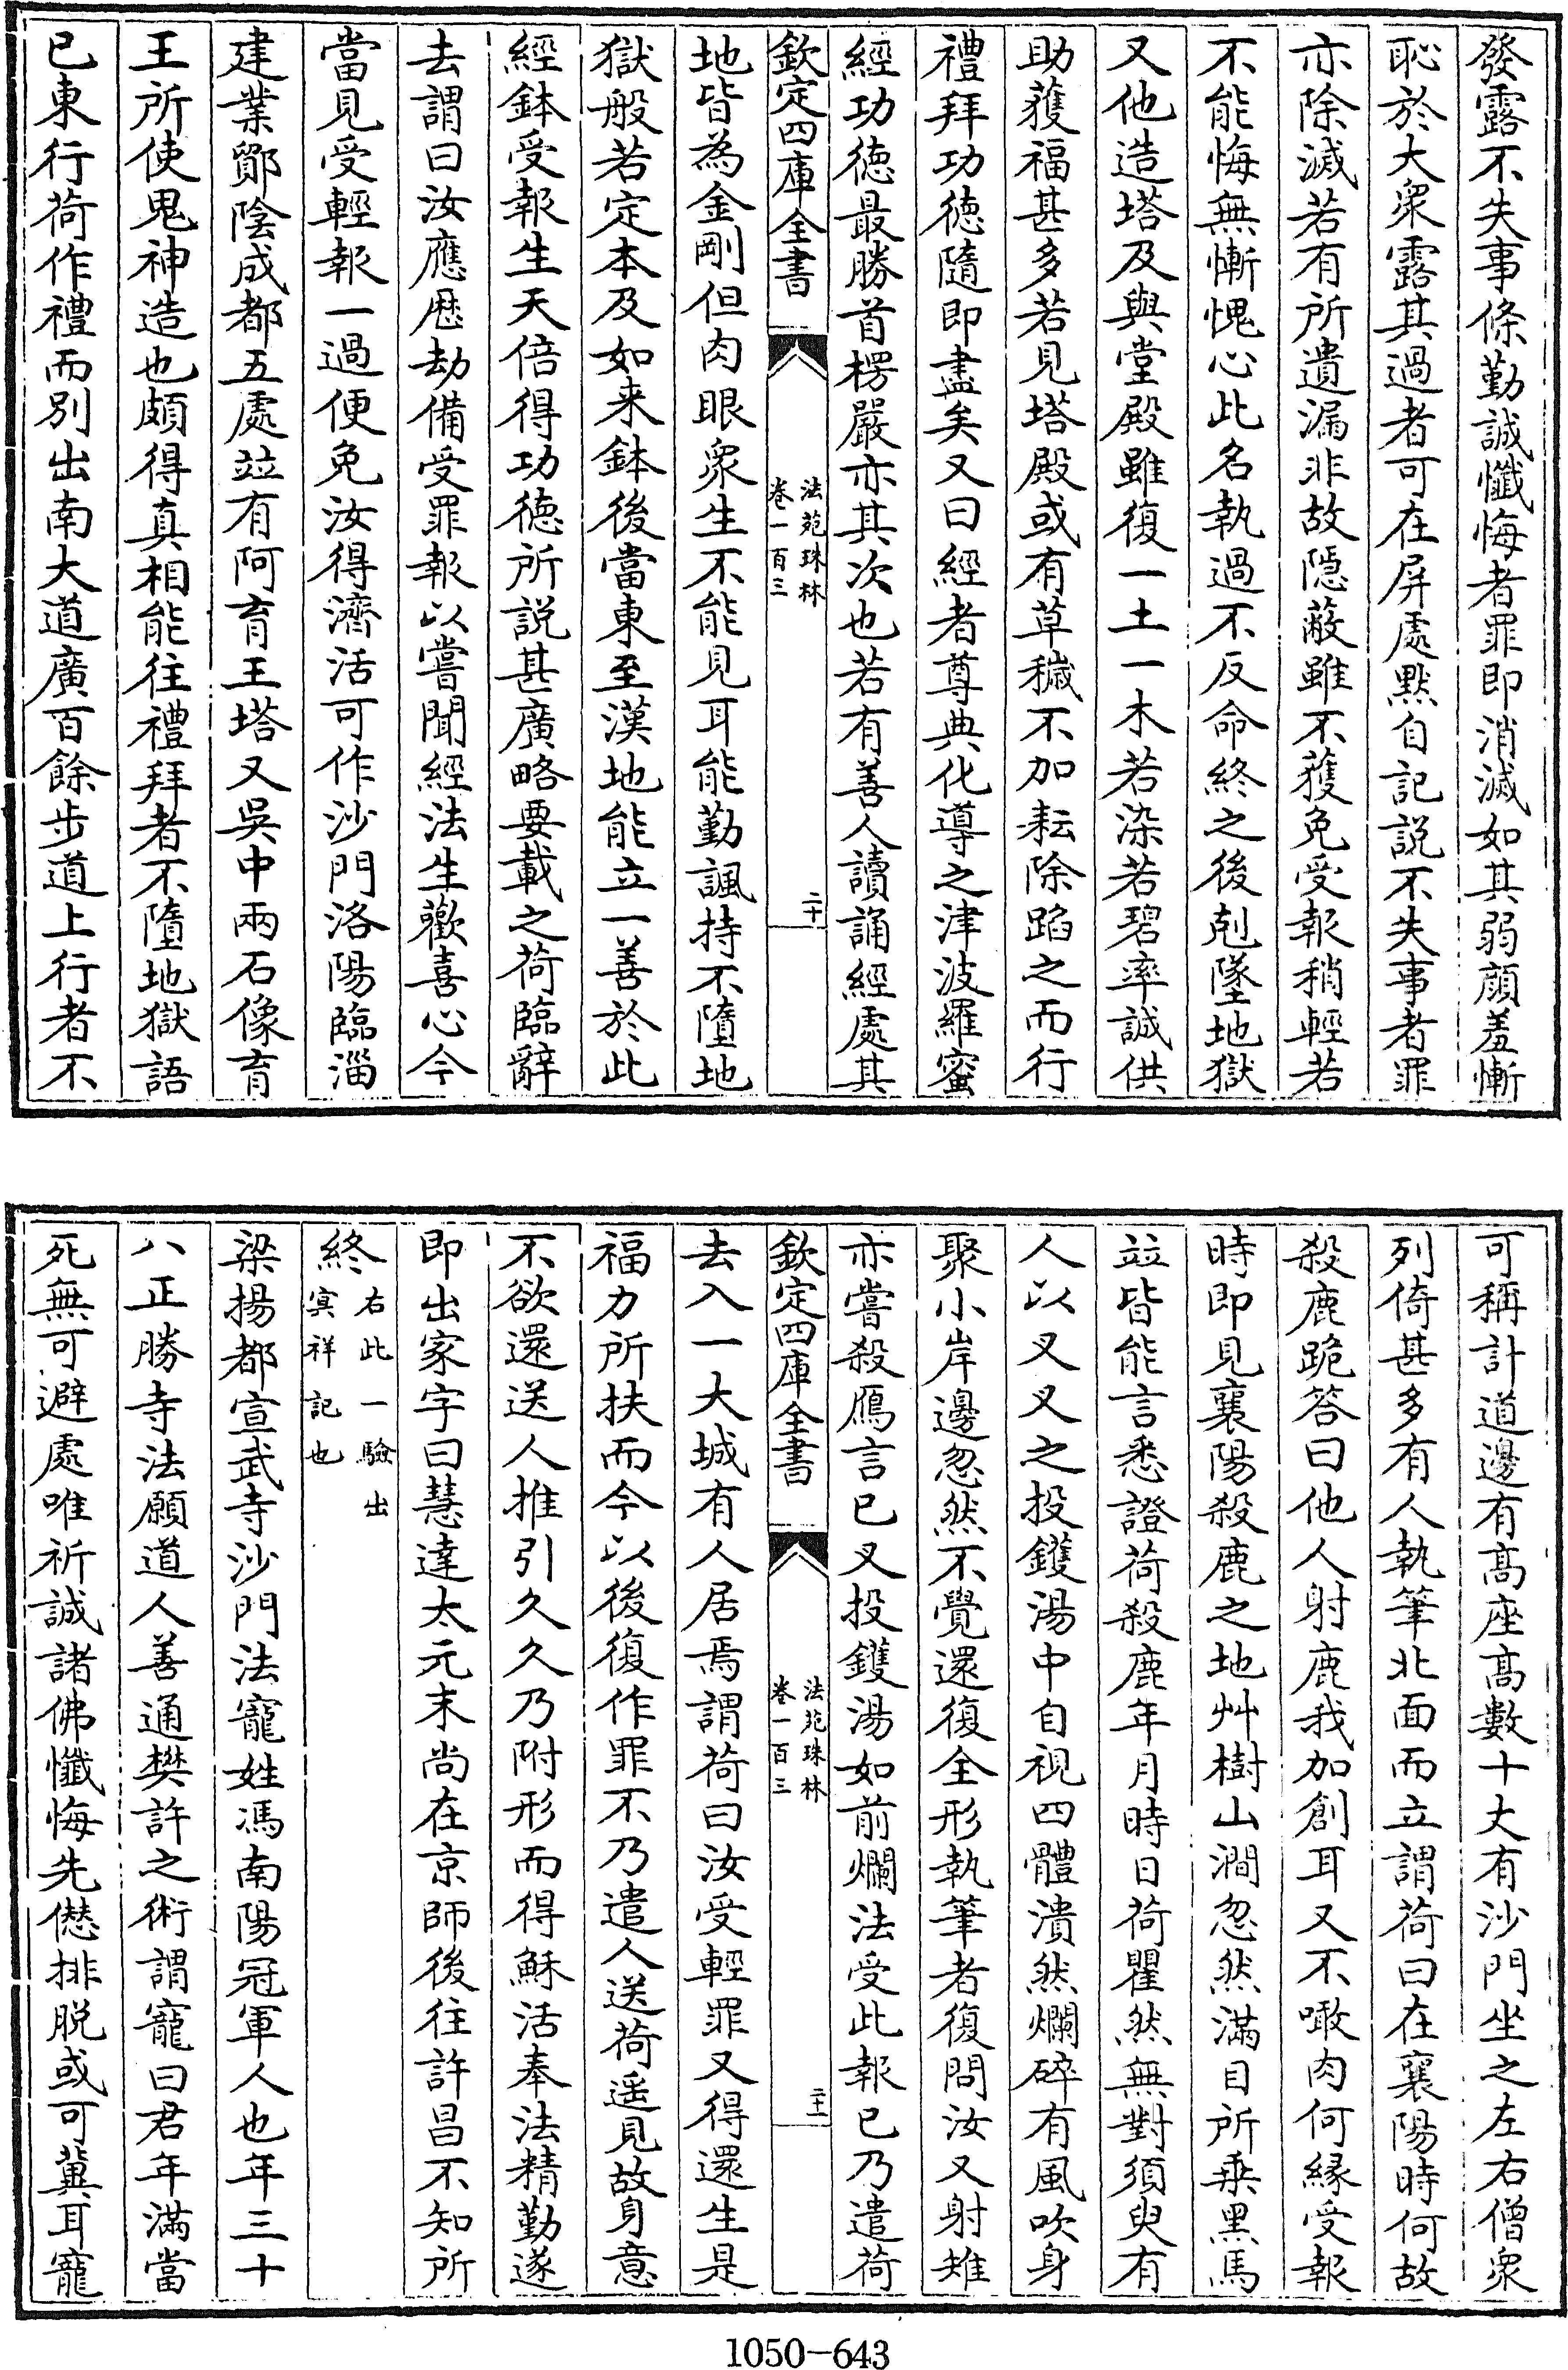 發露不失事條勤誠懺悔者罪即消滅如其弱顔羞慚
恥於大衆露其過者可在屏處黙自記説不失事者罪
亦除滅若有所遺漏非故隠蔽雖不獲免受報稍輕若
不能悔無慚愧心此名執過不反命終之後剋墜地獄
又他造塔及與堂殿雖復一土一木若染若碧率誠供
助獲福甚多若見塔殿或有草穢不加耘除蹈之而行
禮拜功徳隨即盡矣又曰經者尊典化導之津波羅蜜
經功徳最勝首楞嚴亦其次也若有善人讀誦經處其
欽定四庫全書
法苑珠林
卷一百三
二十
地皆為金剛但肉眼衆生不能見耳能勤諷持不墮地
獄般若定本及如来鉢後當東至漢地能立一善於此
經鉢受報生天倍得功徳所説甚廣略要載之荷臨辭
去謂曰汝應歴劫備受罪報以嘗聞經法生歡喜心今
當見受輕報一過便免汝得濟活可作沙門洛陽臨淄
建業鄮陰成都五處竝有阿育王塔又吳中兩石像育
王所使鬼神造也頗得真相能往禮拜者不墮地獄語
已東行荷作禮而别出南大道廣百餘步道上行者不
可稱計道邊有髙座髙數十丈有沙門坐之左右僧衆
列倚甚多有人執筆北面而立謂荷曰在襄陽時何故
殺鹿跪答曰他人射鹿我加創耳又不噉肉何緣受報
時即見襄陽殺鹿之地艸樹山澗忽然滿目所乗黑馬
竝皆能言悉證荷殺鹿年月時日荷瞿然無對須臾有
人以叉叉之投鑊湯中自視四體潰然爛碎有風吹身
聚小岸邊忽然不覺還復全形執筆者復問汝又射雉
亦嘗殺鴈言已叉投鑊湯如前爛法受此報已乃遣荷
欽定四庫全書
法苑珠林
卷一百三
二十一
去入一大城有人居焉謂荷曰汝受輕罪又得還生是
福力所扶而今以後復作罪不乃遣人送荷遥見故身意
不欲還送人推引久久乃附形而得穌活奉法精勤遂
即出家字曰慧達太元末尚在京師後往許昌不知所
終右此一驗出
冥祥記也
梁揚都宣武寺沙門法寵姓馮南陽冠軍人也年三十
八正勝寺法願道人善通樊許之術謂寵曰君年滿當
死無可避處唯祈誠諸佛懺悔先愆排脱或可冀耳寵
1050-643